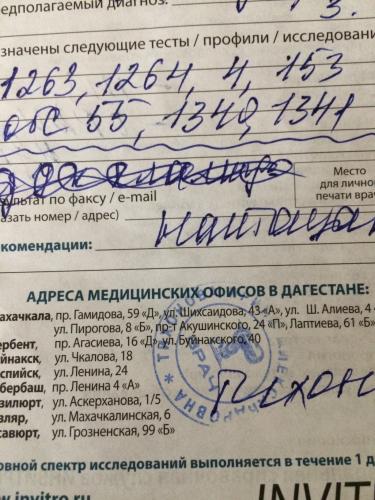 едполагаемый диагноз:
значены следующие тесты / профили / исследовани
1263, 1264, 4, 153
обс 55, 1340, 1341
зультат по факсу / e-mail
казать номер / адрес)
Место
для лично
печати врач
натоща
комендации:
АДРЕСА МЕДИЦИНСКИХ ОФИСОВ В ДАГЕСТАНЕ:
ахачкала, пр. Гамидова, 59 «Д», ул. Шихсаидова, 43 «А», ул. Ш. Алиева, 4
ул. Пирогова, 8 «Б», пр-т Акушинского, 24 «П», Лаптиева, 61 «Б»
ербент, пр. Агасиева, 16 «Д», ул. Буйнакского, 40
йнакск, ул. Чкалова, 18
спийск, ул. Ленина, 24
бербаш, пр. Ленина 4 «А»
зилюрт, ул. Аскерханова, 1/5
зляр, ул. Махачкалинская, 6
савюрт, ул. Грозненская, 99 «Б»
ВРАЧ
овной спектр исследований выполняется в течение 1 д
w.invitro.ru
INVIT